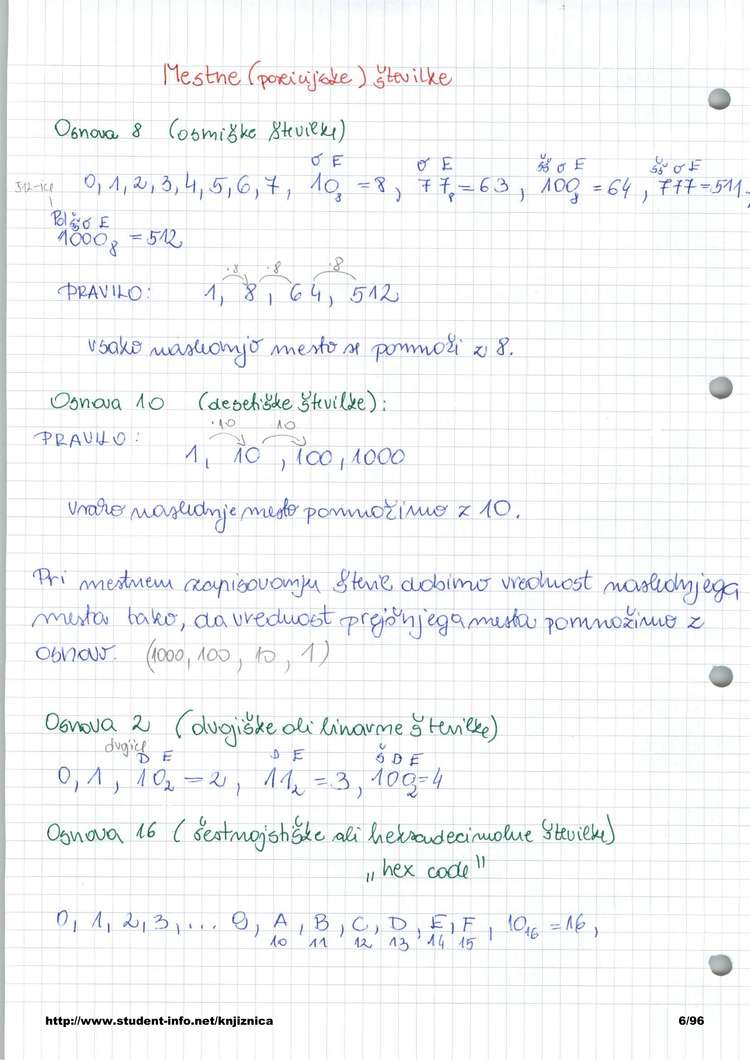 Mestne (pozicijske) številke
Osnova 8 (osmiške številke)
O E O E Š O E Š O E
512-ice 0, 1, 2, 3, 4, 5, 6, 7, 10₈ = 8, 77₈ = 63, 100₈ = 64, 777 = 511,
Š O E
1000₈ = 512
·8 ·8 ·8
PRAVILO: 1, 8, 64, 512
vsako naslednjo mesto se pomnoži z 8.
Osnova 10 (desetiške številke):
·10 10
PRAVILO: 1, 10, 100, 1000
vsako naslednje mesto pomnožimo z 10.
Pri mestnem zapisovanju števil dobimo vrednost naslednjega
mesta tako, da vrednost prejšnjega mesta pomnožimo z
osnovo. (1000, 100, 10, 1)
Osnova 2 (dvojiške ali binarne številke)
dvojice
D E D E Š D E
0, 1, 10₂ = 2, 11₂ = 3, 100₂ = 4
Osnova 16 (šestnajstiške ali heksadecimalne številke)
„hex code"
0, 1, 2, 3, ... 9, A, B, C, D, E, F, 10₁₆ = 16,
10 11 12 13 14 15
http://www.student-info.net/knjiznica 6/96